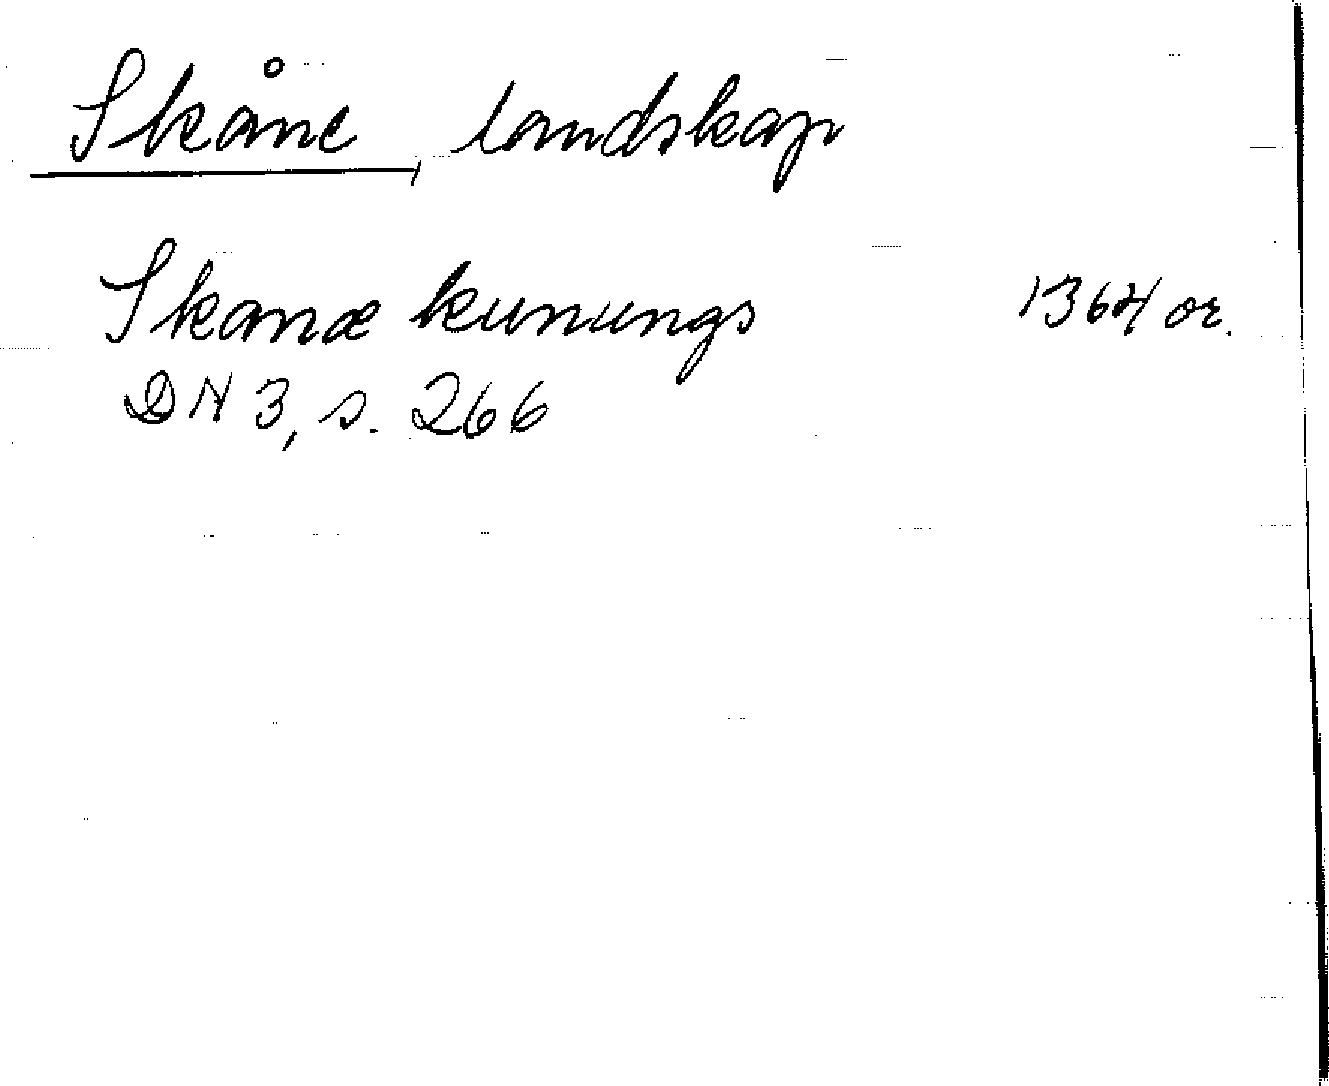 Skåne, landskap
Skanæ kunungs 1364 or.
DN 3, s. 266